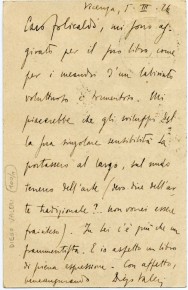 Vicenza, 5 III. 26
Caro Folicaldi, mi sono ag-
girato per il suo libro, come
per i meandri d'un labirinto
voluttuoso e tormentoso. Mi
piacerebbe che gli sviluppi del
la sua singolare sensibilità la
portassero al largo, sul mare
tenereo dell'arte (devo dire dell'ar-
te tradizionale? non vorrei essere
frainteso). In lei c'è più che un
frammentista. E io aspetto un libro
di piena espressione. Con affetto,
Diego Valeri
DIEGO VALERI